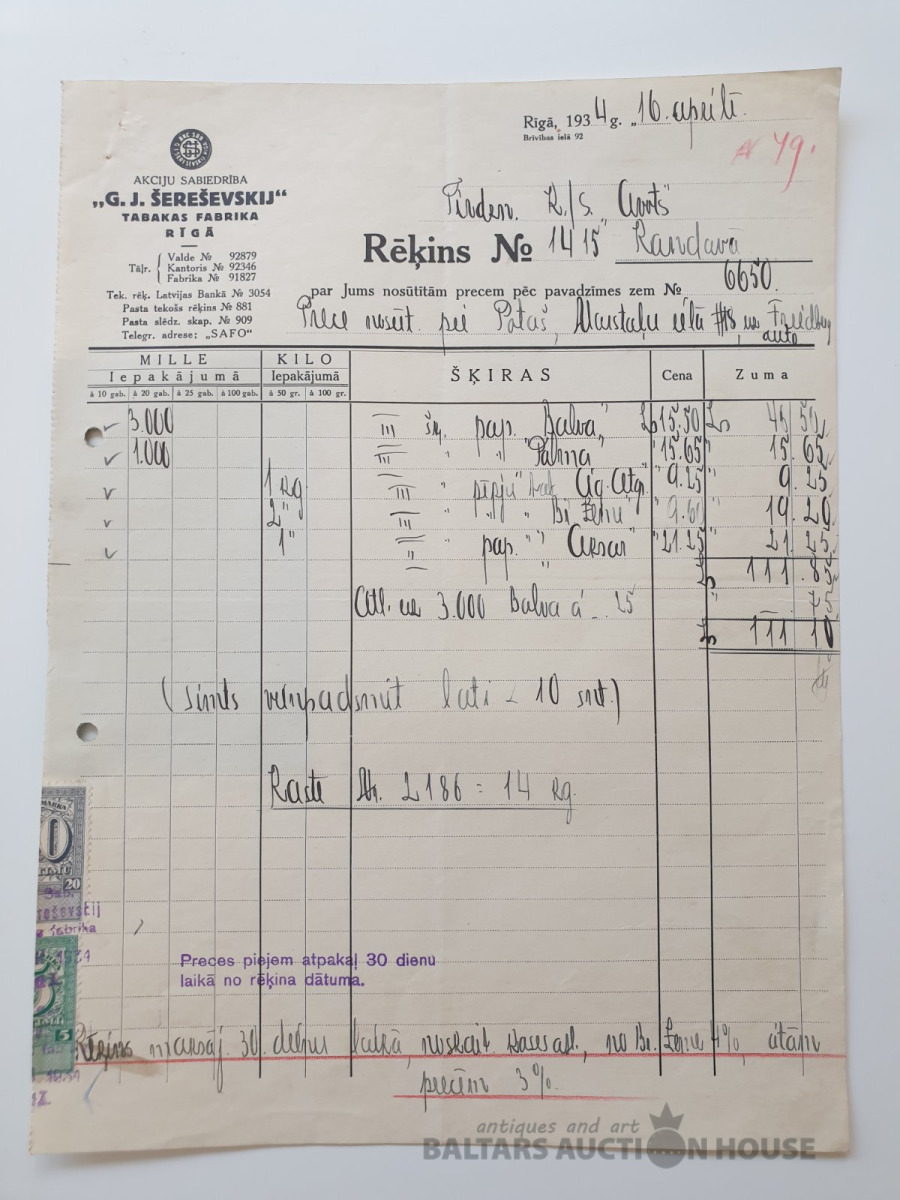 Rīgā, 1934 g. „16. aprīlī.
Brīvības ielā 92
№ 49.
AKCIJU SABIEDRĪBA
„G. J. ŠEREŠEVSKIJ“
TABAKAS FABRIKA
RĪGĀ
Tāļr. Valde № 92879
Kantoris № 92346
Fabrika № 91827
Tek. rēķ. Latvijas Bankā № 3054
Pasta tekošs rēķins № 881
Pasta slēdz. skap. № 909
Telegr. adrese; „SAFO“
K/S. "Avots"
Rēķins № 1415 Kandavā
par Jums nosūtītām precem pēc pavadzīmes zem № 6650.
Prece nosūt. pie ielā #18 uz
auto
MILLE KILO ŠĶIRAS Cena Zuma
Iepakājumā Iepakājumā
à 10 gab. à 20 gab. à 25 gab. à 100 gab. à 50 gr. à 100 gr.
3.000 III šķ. pap. "Balva" Ls 15.50 Ls 46 50
1.000 III " " "Palma" "15.65 " 15 65
1 kg III " pīpju "9.25 " 9 25
2 " III " " " "9.60 " 19 20
1 " II " pap. " " 21.25 " 21 25
Ls 111 85
Atl. uz 3.000 Balva á -.25 " — 75
Ls 111 10
(simts vienpadsmit lati - 10 snt.)
Kaste Nr. 2186 = 14 kg.
20
fabrika
5
Preces piejem atpakaļ 30 dienu
laikā no rēķina dātuma.
Rēķins 30 dienu laikā, noskait. no 4%,
precēm 3%.
antiques and art
BALTARS AUCTION HOUSE